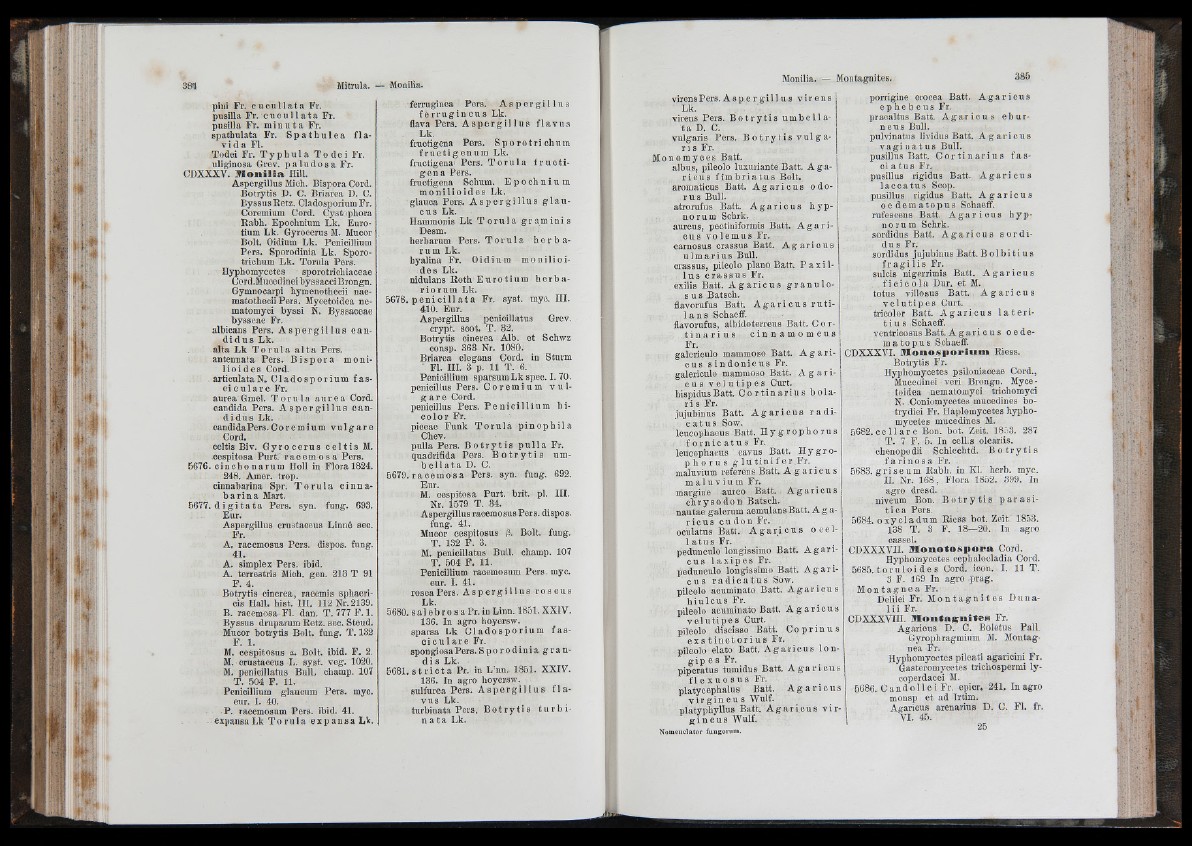 384
Mitrula. — Monilia.
pini Fr. cucullata Fr.
pusilla Fr. cucullata Fr.
pusilla Fr. minuta Fr.
spathulata Fr. Spathulea fla-
vida Fl.
Todei Fr. Typhula Todei Fr.
uliginosa Grev. paludosa Fr.
CDXXXV. Monilia Hill.
Aspergillus Mich. Bispora Cord.
Botrytis D. C. Briarea D. C.
Byssus Retz. Cladosporium Fr.
Coremium Cord. Cystophora
Rabh. Epochnium Lk. Euro-
tium Lk. Gyrocerus M. Mucor
Bolt. Oidium Lk. Penicillium
Pers. Sporodinia Lk. Sporo-
trichum Lk. Torula Pers.
Hyphomycetes sporotrichiaceae
Cord. Mucedinei byssacei Brongn.
Gymnocarpi hymenothecii nae-
matothecii Pers. Mycetoidea ne-
matomyci byssi N. Byssaceae
bysseae Fr.
albicans Pers. Aspergillus can-
didus Lk.
alta Lk Torula alta Pers.
antennata Pers. Bispora moni-
lioides Cord.
articulata N. Cladosporium fas-
ciculare Fr.
aurea Gmel. Torula aurea Cord.
candida Pers. Aspergillus can-
didus Lk.
candida Pers. Coremium vulgare
Cord.
celtis Biv. Gyrocerus celtis M.
cespitosa Purt. racemosa Pers.
5676. cinchonarum Holl in Flora 1824.
248. Amer. trop.
cinnabarina Spr. Torula cinna-
barina Mart.
5677. digitata Pers. syn. fung. 693.
Eur.
Aspergillus crustaceus Linné sec.
Fr.
A. racemosus Pers. dispos. fung.
41.
A. simplex Pers. ibid.
A. terrestris Mich. gen. 213 T 91
F. 4.
Botrytis cinerea, racemis sphaeri-
cis Hall. hist. III. 112 Nr. 2139.
B. racemosa Fl. dan. T. 777 F. 1.
Byssus druparum Retz. sec. Steud.
Mucor botrytis Bolt. fung. T. 132
F. 1.
M. cespitosus α. Bolt. ibid. F. 2.
M. crustaceus L. syst. veg. 1020.
M. penicillatus Bull. champ. 107
T. 504 F. 11.
Penicillium glaucum Pers. myc.
eur. I. 40.
P. racemosum Pers. ibid. 41.
expansa Lk Torula expansa Lk.
ferruginea Pers. Aspergillus
ferrugineus Lk.
flava Pers. Aspergillus flavus
Lk.
fructigena Pers. Sporotrichum
fructigenum Lk.
fructigena Pers. Torula fructi-
gena Pers.
fructigena Schum. Epochnium
monilioides Lk.
glauca Pers. Aspergillus glau-
cus Lk.
Hammonis Lk Torula graminis
Desm.
herbarum Pers. Torula herba-
rum Lk.
hyalina Fr. Oidium monilioi-
des Lk.
nidulans Roth Eurotium herba-
riorum Lk.
5678. penicillata Fr. syst. myc. III.
410. Eur.
Aspergillus penicillatus Grev.
crypt. scot. T. 32.
Botrytis cinerea Alb. et Schwz
consp. 363 Nr. 1080.
Briarea elegans Cord. in Sturm
Fl. III. 3 p. 11 T. 6.
Penicillium sparsum Lk spec. I. 70.
penicillus Pers. Coremium vul-
gare Cord.
penicillus Pers. Penicillium bi-
color Fr.
piceae Funk Torula pinophila
Chev.
pulla Pers. Botrytis pulla Fr.
quadrifida Pers. Botrytis um-
bellata D. C.
5679. racemosa Pers. syn. fung. 692.
Eur.
M. cespitosa Purt. brit. pl. III.
Nr. 1579 T. 34.
Aspergillus racemosus Pers. dispos.
fung. 41.
Mucor cespitosus β. Bolt. fung.
T. 132 F. 3.
M. penicillatus Bull. champ. 107
T. 504 F. 11.
Penicillium racemosum Pers. myc.
eur. I. 41.
rosea Pers. Aspergillus roseus
Lk.
5680. salebrosa Pr. in Linn. 1851. XXIV.
136. In agro hoyersw.
sparsa Lk Cladosporium fas-
ciculare Fr.
spongiosa Pers. Sporodinia gran-
dis Lk.
5681. stricta Pr. in Linn. 1851. XXIV.
136. In agro hoyersw.
sulfurea Pers. Aspergillus fla-
vus Lk.
turbinata Pers. Botrytis turbi-
nata Lk.
Monilia. — Montagnites.
385
virens Pers. Aspergillus virens
Lk.
virens Pers. Botrytis umbella-
ta D. C.
vulgaris Pers. Botrytis vulga-
ris Fr.
Monomyces Batt.
albus, pileolo luxuriante Batt. Aga-
ricus fimbriatus Bolt.
aromaticus Batt. Agaricus odo-
rus Bull.
atrorufus Batt. Agaricus hyp-
norum Schrk.
aureus, pectiniformis Batt. Agari-
cus volemus Fr.
carnosus crassus Batt. Agaricus
ulmarius Bull.
crassus, pileolo plano Batt. Paxil-
lus crassus Fr.
exilis Batt. Agaricus granulo-
sus Batsch.
flavorufus Batt. Agaricus ruti-
lans Schaeff.
flavorufus, albidoterreus Batt. Cor-
tinarius cinnamomeus
Fr.
galericulo mammoso Batt. Agari-
cus sindonicus Fr.
galericulo mammoso Batt. Agari-
cus velutipes Curt.
hispidus Batt. Cortinarius bola-
ris Fr.
jujubinus Batt. Agaricus radi-
catus Sow.
leucophaeus Batt. Hygrophorus
fornicatus Fr.
leucophaeus cavus Batt. Hygro-
phorus glutinifer Fr.
maluvium referens Batt. Agaricus
maluvium Fr.
margine aureo Batt. Agaricus
chrysodon Batsch.
nautae galerum aemulans Batt. Aga-
ricus cudon Fr.
oculatus Batt. Agaricus ocel-
latus Fr.
pedunculo longissimo Batt. Agari-
cus laxipes Fr.
pedunculo longissimo Batt. Agari-
cus radicatus Sow.
pileolo acuminato Batt. Agaricus
hiulcus Fr.
pileolo acuminato Batt. Agaricus
velutipes Curt.
pileolo discisso Batt. Coprinus
exstinctorius Fr.
pileolo elato Batt. Agaricus lon-
gipes Fr.
piperatus tumidus Batt. Agaricus
flexuosus Fr.
platycephalus Batt. Agaricus
virgineus Wulf.
platyphyllus Batt. Agaricus vir-
gineus Wulf.
Nomenclator fungorum.
porrigine crocea Batt. Agaricus
ephebeus Fr.
praealtus Batt. Agaricus ebur-
neus Bull.
pulvinatus lividus Batt. Agaricus
vaginatus Bull.
pusillus Batt. Cortinarius fas-
ciatus Fr.
pusillus rigidus Batt. Agaricus
laccatus Scop.
pusillus rigidus Batt. Agaricus
oedematopus Schaeff.
rufescens Batt. Agaricus hyp-
norum Schrk.
sordidus Batt. Agaricus sordi-
dus Fr.
sordidus jujubinus Batt. Bolbitius
fragilis Fr.
sulcis nigerrimis Batt. Agaricus
ficicola Dur. et M.
totus villosus Batt. Agaricus
velutipes Curt.
tricolor Batt. Agaricus lateri-
tius Schaeff.
ventricosus Batt. Agaricus oede-
matopus Schaeff.
CDXXXVI. Monosporium Riess.
Botrytis Fr.
Hyphomycetes psiloniaceae Cord.,
Mucedinei veri Brongn. Myce-
toidea nematomyci trichomyci
N. Coniomycetes mucedines bo-
trydiei Fr. Haplomycetes hypho-
mycetes mucedines M.
5682. cellare Bon. bot. Zeit. 1853. 287
T. 7 F. 5. In cellis olearils.
chenopodii Schlechtd. Botrytis
farinosa Fr.
5683. griseum Rabh. in Kl. herb. myc.
II. Nr. 168, Flora 1852. 399. In
agro dresd.
niveum Bon. Botrytis parasi-
tica Pers
5684. oxycladum Riess bot. Zeit. 1853.
138 T. 3 F. 18—20. In agro
cassel.
CDXXXVII. Monotospora Cord.
Hyphomycetes cephalocladia Cord.
5685. toruloides Cord. icon. I. 11 T.
3 F. 169 In agro prag.
Montagnea Fr.
Delilei Fr. Montagnites Duna-
lii Fr.
CDXXXVIII. Montagnites Fr.
Agaricus D. C. Boletus Pall.
Gyrophragmium M. Montag-
nea Fr.
Hyphomycetes pileati agaricini Fr.
Gasteromycetes trichospermi ly-
coperdacei M.
5686. Candollei Fr. epicr. 241. In agro
monsp. et ad Irtim.
Agaricus arenarius D. C. Fl. fr.
VI. 45.
25